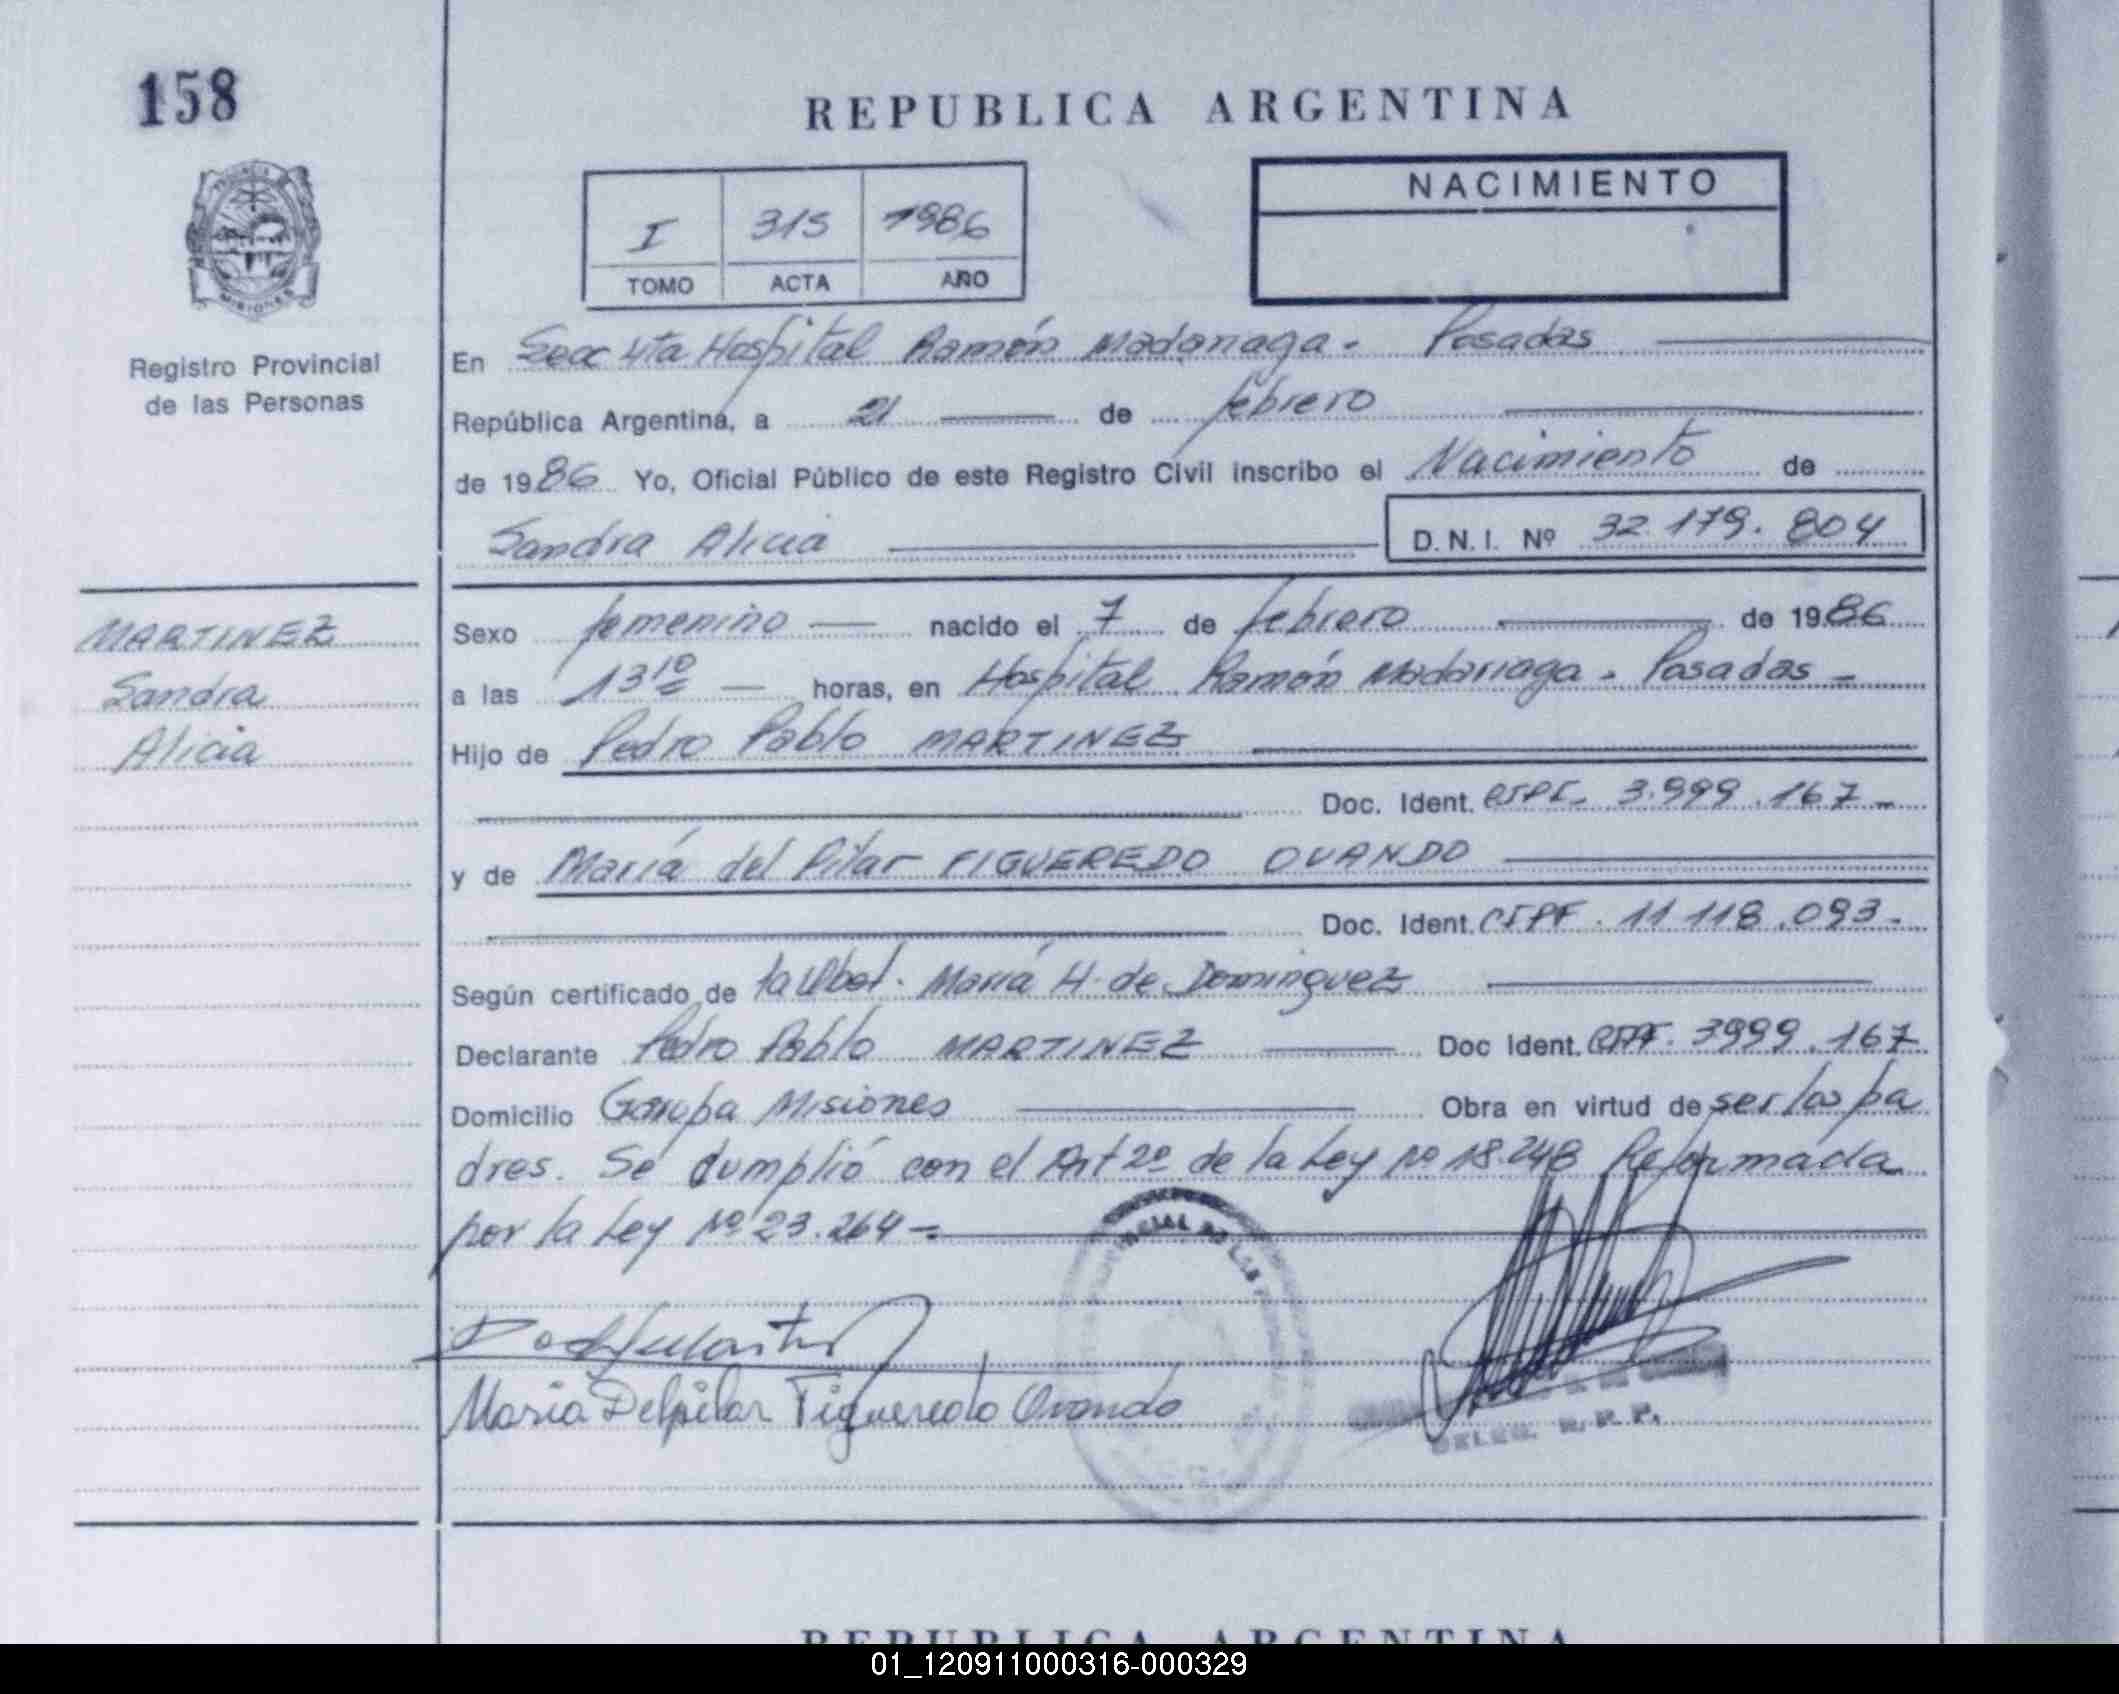 158
REPUBLICA ARGENTINA
I 315 1986
TOMO ACTA AÑO
NACIMIENTO
MISIONES
Registro Provincial
de las Personas
En Secc 4ta Hospital Ramón Madariaga - Posadas
República Argentina, a 21 de febrero
de 1986 Yo, Oficial Público de este Registro Civil inscribo el Nacimiento de
Sandra Alicia D.N.I. Nº 32.179.804
MARTINEZ
Sandra
Alicia
Sexo femenino nacido el 7 de febrero de 1986
a las 13 10 horas, en Hospital Ramón Madariaga - Posadas -
Hijo de Pedro Pablo MARTINEZ
Doc. Ident. 3.999.167 -
y de María del Pilar FIGUEREDO OVANDO
Doc. Ident. CIPF. 11.118.093 -
Según certificado de la Obst. María H. de Dominguez
Declarante Pedro Pablo MARTINEZ Doc Ident. 3999.167
Domicilio Garupa Misiones Obra en virtud de ser los pa
dres. Se cumplió con el Art 2º de la Ley Nº 18.248 Reformada
por la Ley Nº 23.264 =
Maria Delpilar Figueredo Ovando
DELEG. R. P. P.
REPUBLICA ARGENTINA
01_120911000316-000329